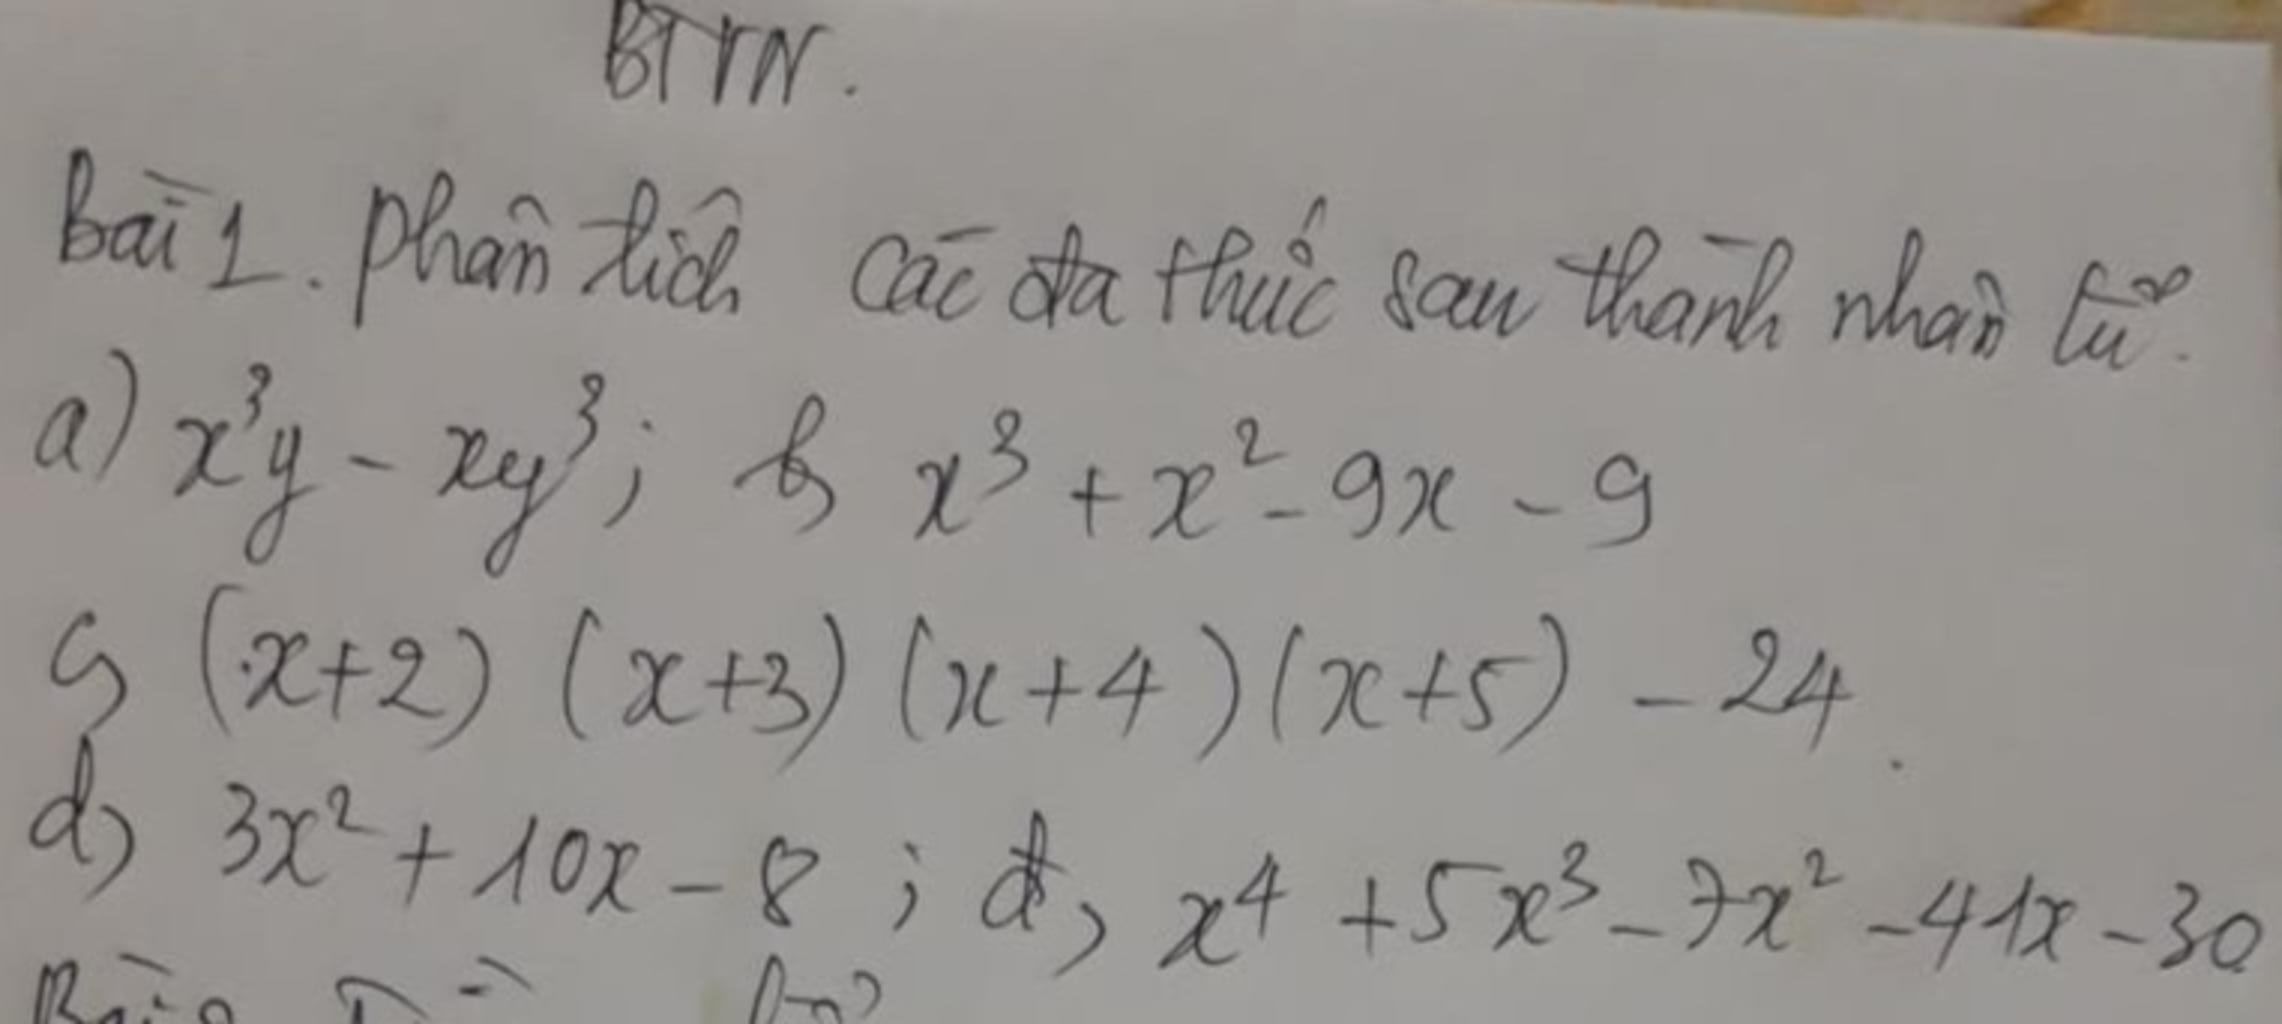 BTVN.
Bài 1. phân tích các đa thức sau thành nhân tử.
a) x³y - xy³; b) x³ + x² - 9x - 9
c) (x+2) (x+3) (x+4) (x+5) - 24.
d) 3x² + 10x - 8 ; đ) x⁴ + 5x³ - 7x² - 41x - 30